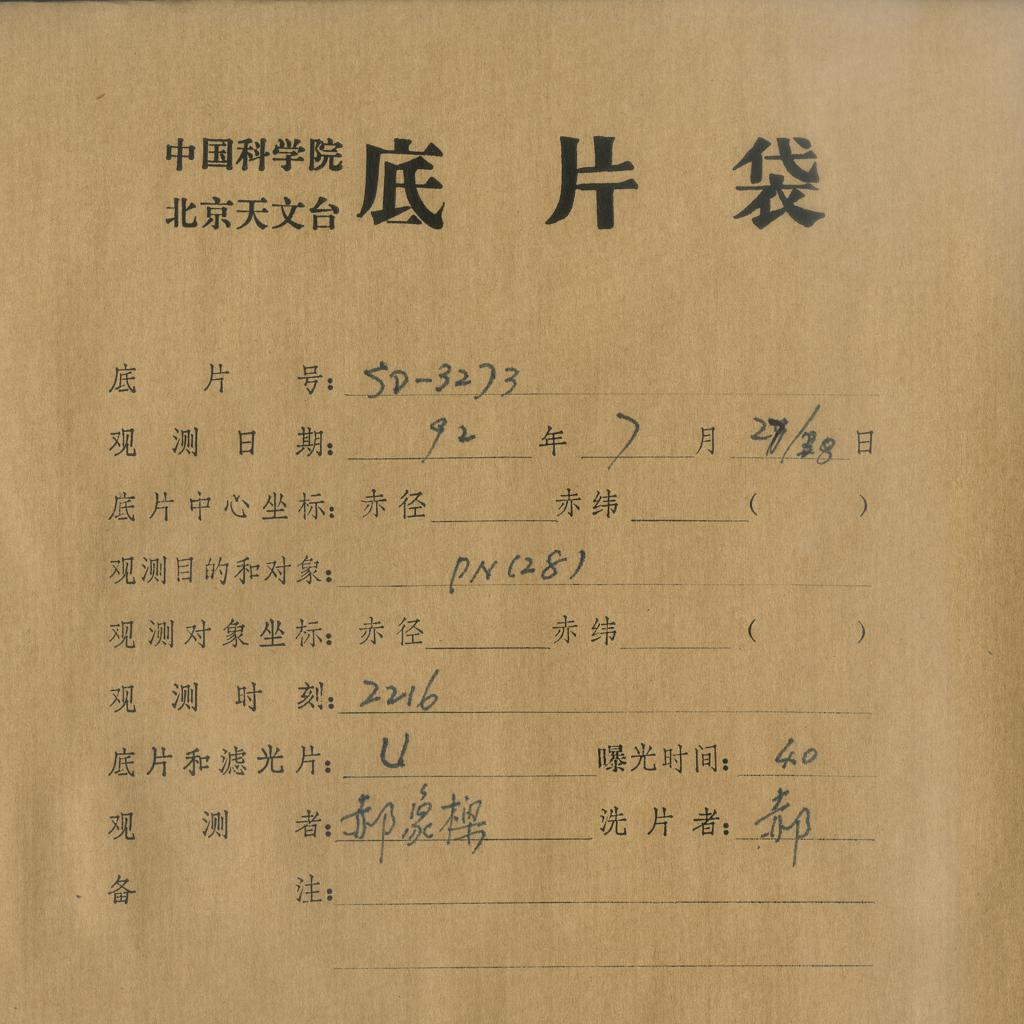 中国科学院
北京天文台
底片袋
底片号: SD-3273
观测日期: 92年7月27/28日
底片中心坐标: 赤径 赤纬 ( )
观测目的和对象: PN(28)
观测对象坐标: 赤径 赤纬 ( )
观测时刻: 2216
底片和滤光片: U 曝光时间: 40
观测者: 郝象樑 洗片者: 郝
备注: